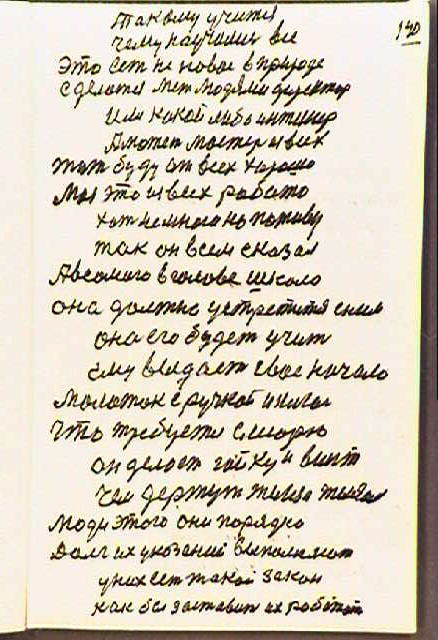 такому учится
чему научиш все
140
Это ест не новое в природе
сделатся мет людями директор
Или какой либо инжинир
А может мастер из всих
тот буду от всех хорошо
Мы это из всех работо
хот немного но поживу
так он всем сказал
А всамого в голове школо
она должно устретится сним
она его будет учит
ему выдаст свое начало
молоток с ручкой
Что требуется
он делает гайку и винт
чем держут
люди этого они порядка
Долг их указаний выполняют
у них ест такой закон
как бы заставит их работат